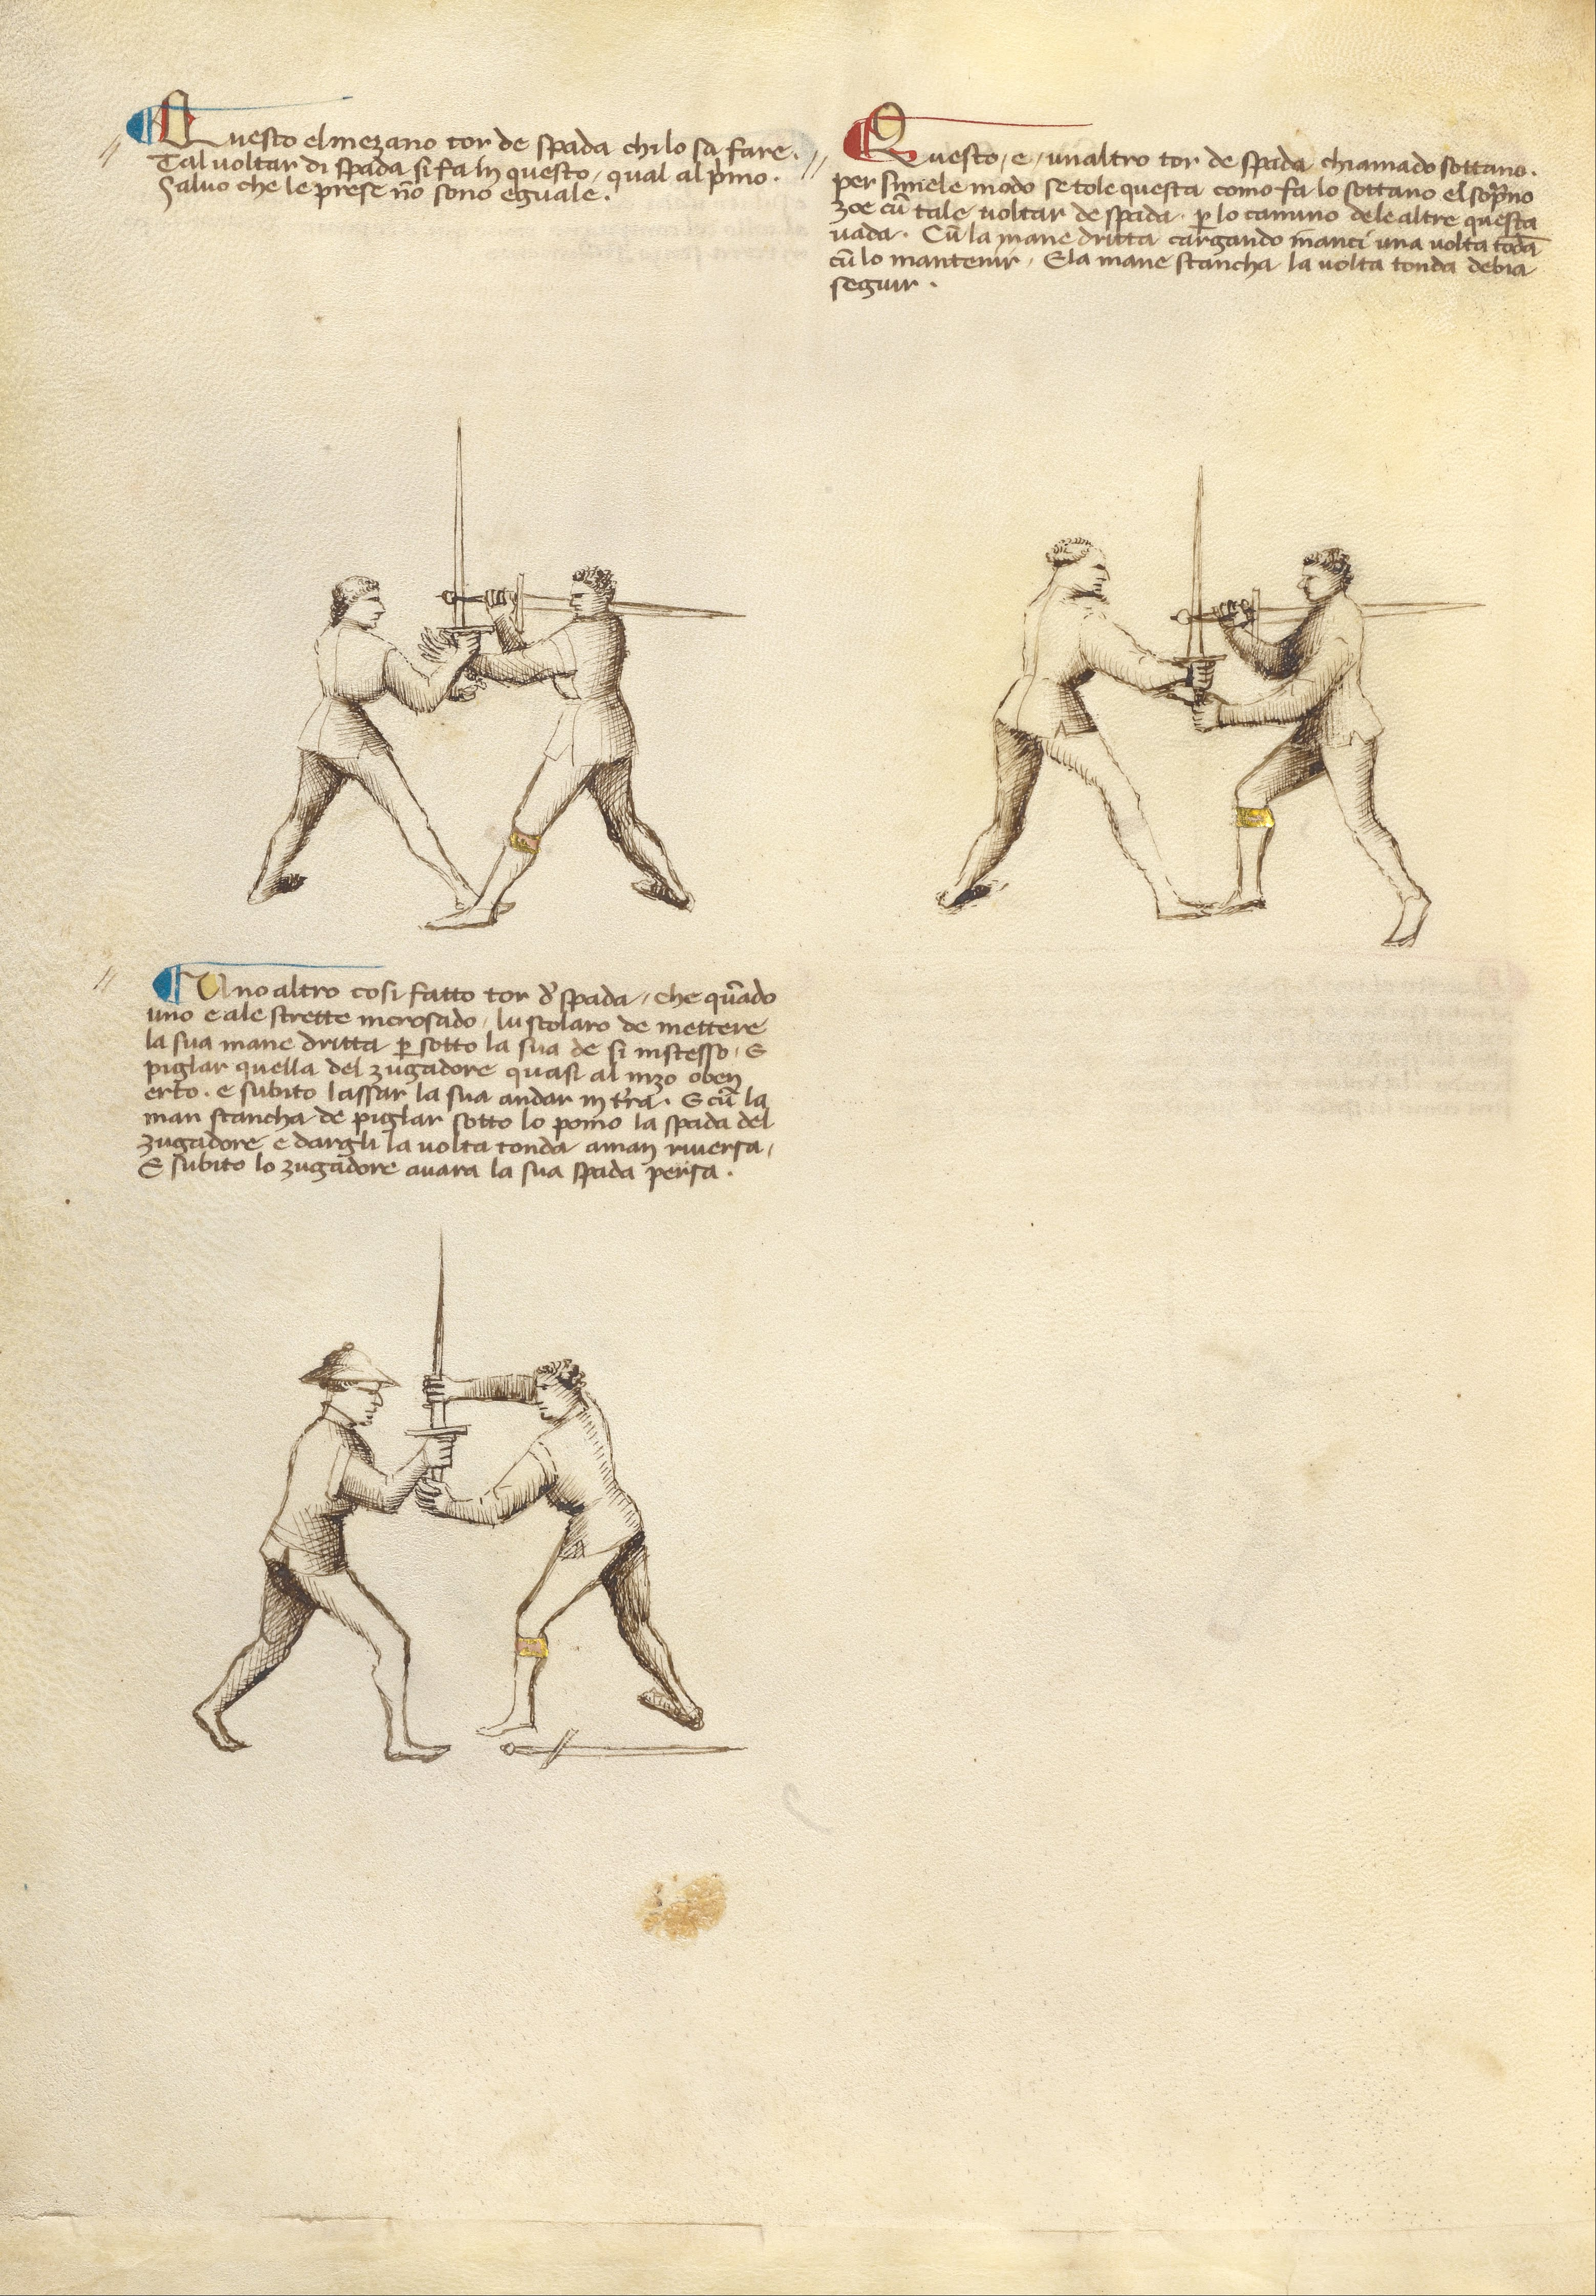 Questo el mezano tor de spada chi lo sa fare.
Tal voltar di spada si fa in questo, qual al p̃mo.
Salvo che le prese nō sono eguale.
Questo, e, un altro tor de spada chiamado sottano.
per simele modo se tole questa como fa lo sottano el sop̃no
zoe cū tale voltar de spada. p lo camino de le altre questa
vada. Cū la mane dritta cargando inanci una volta tōda
cū lo mantenir, E la mane stancha la volta tonda debia
seguir.
Uno altro cosi fatto tor d' spada, che q̄n̄do
uno e a le strette incrosado, lu scolaro de mettere
la sua mane dritta p sotto la sua de si instesso, E
piglar quella del zugadore quasi al mzo o ben
erto. e subito lassar la sua andar in t'ra. E cū la
man stancha de piglar sotto lo pomo la spada del
zugadore e dargli la volta tonda a man riversa,
E subito lo zugadore avara la sua spada persa.